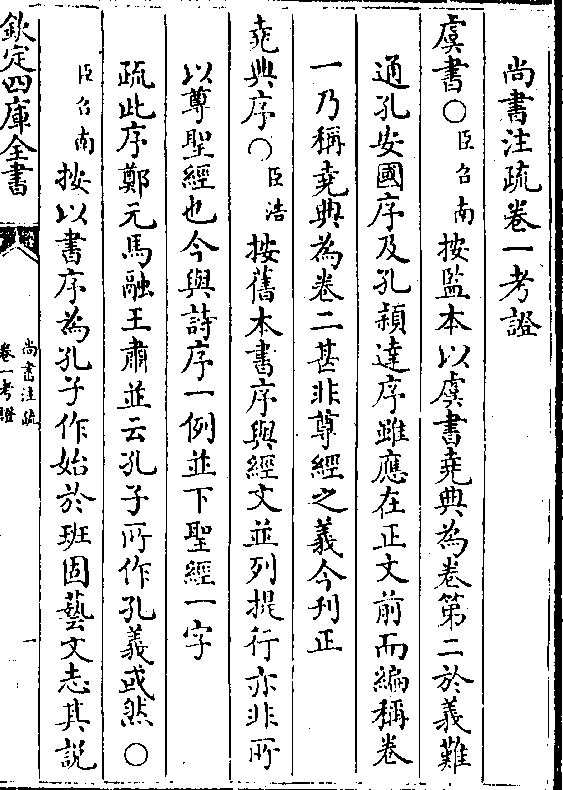 尚書注疏卷一考證
虞書〇臣召南按監本以虞書堯典為卷第二於義難
通孔安國序及孔穎達序雖應在正文前而編稱卷
一乃稱堯典為卷二甚非尊經之義今刊正
堯典序〇臣浩按舊本書序與經文並列提行亦非所
以尊聖經也今與詩序一例並下聖經一字
疏此序鄭元馬融王肅並云孔子所作孔義或然〇
臣召南按以書序為孔子作始於班固藝文志其説
欽定四庫全書
尚書注疏
卷一考證
一